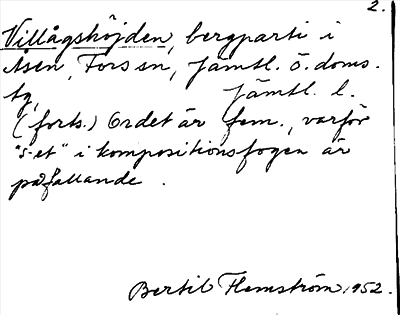 2.
Villågshöjden, bergparti i
Åsen, Fors sn, Jämtl. ö. doms.
tg, Jämtl. l.
(forts.) Ordet är fem., varför
"s-et" i kompositionsfogen är
påfallande.
Bertil Flemström 1952.